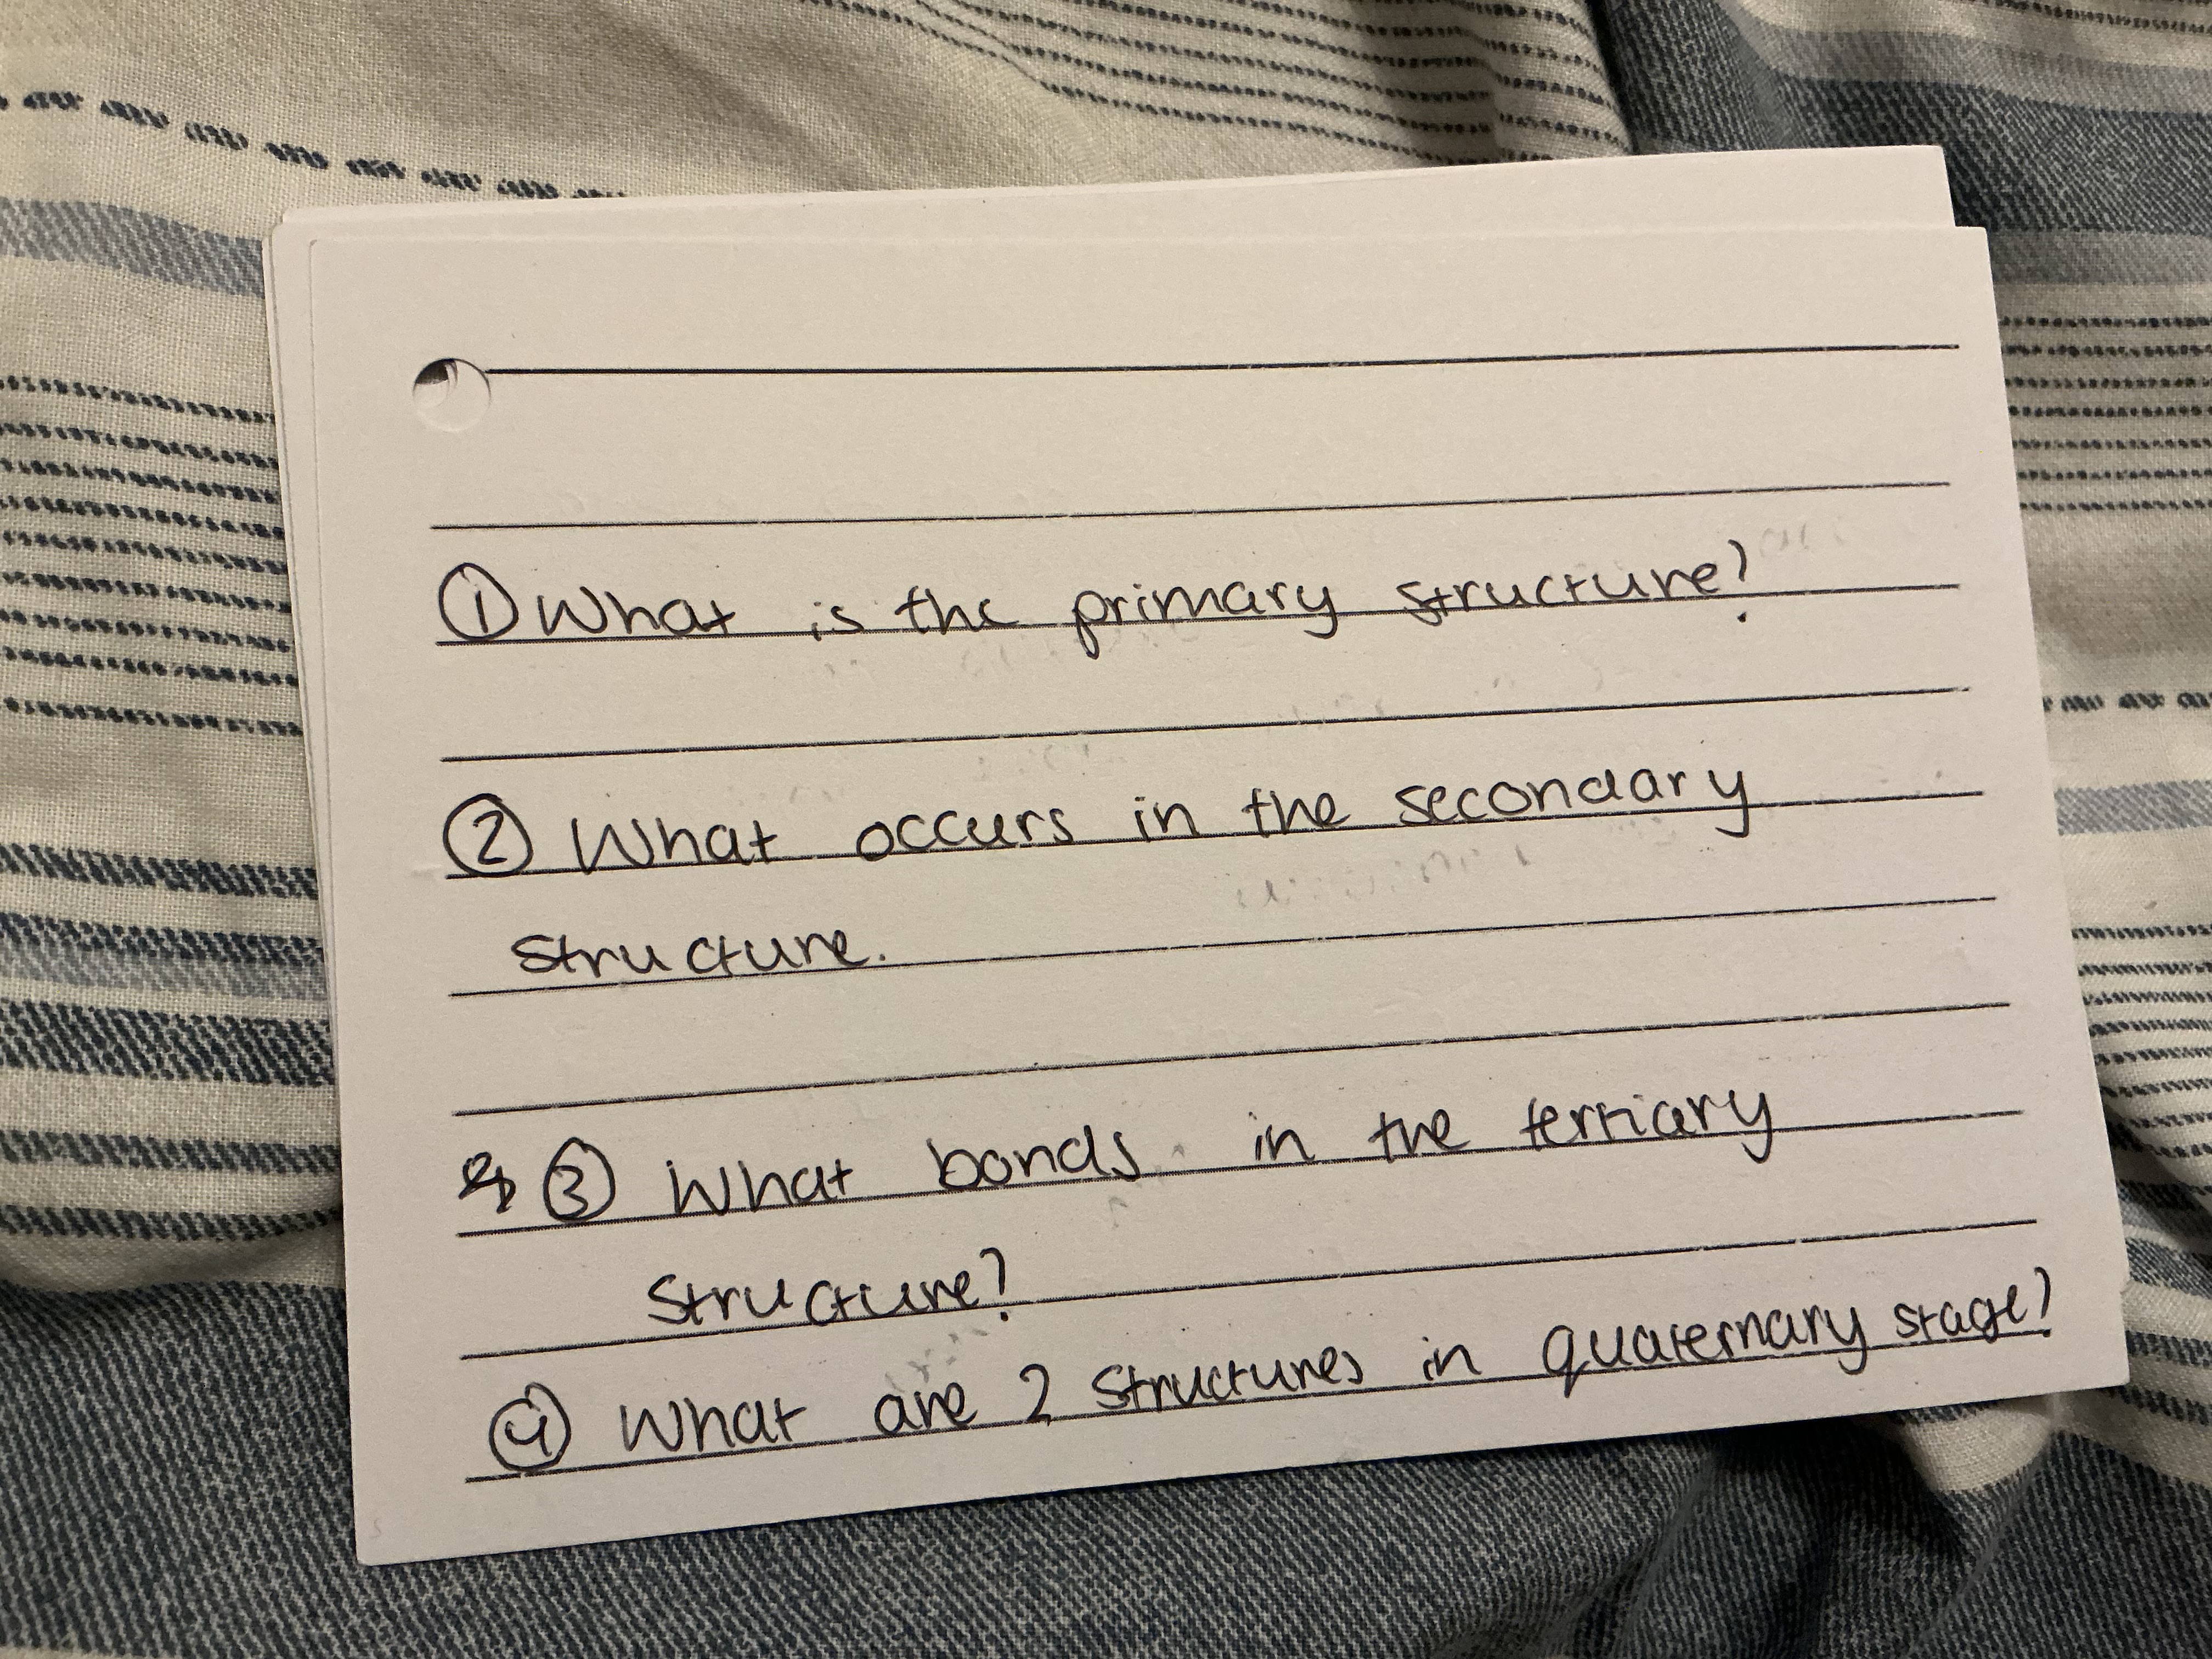 ① What is the primary structure?
② What occurs in the secondary
structure.
③ What bonds in the tertiary
structure?
④ What are 2 structures in quaternary stage?